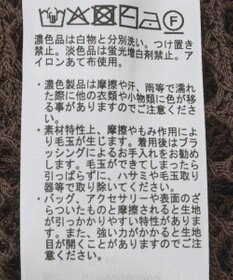 濃色品は白物と分別洗い。つけ置き
禁止。淡色品は蛍光増白剤禁止。ア
イロンあて布使用。
・濃色製品は摩擦や汗、雨等で濡れ
た際に他の衣類や小物類に色が移
る事がありますのでご注意下さ
い。
・素材特性上、摩擦やもみ作用によ
り毛玉が生じます。着用後はブラ
ッシングによるお手入れをお勧め
します。毛玉ができてしまったら
引っぱらずに、ハサミや毛玉取り
器等で取り除いてください。
・バッグ、アクセサリーや表面のざ
らついたものと摩擦されると生地
が引っかかりやすい特性がありま
す。また、強い力がかかると生地
目が開くことがありますのでご注
意ください。